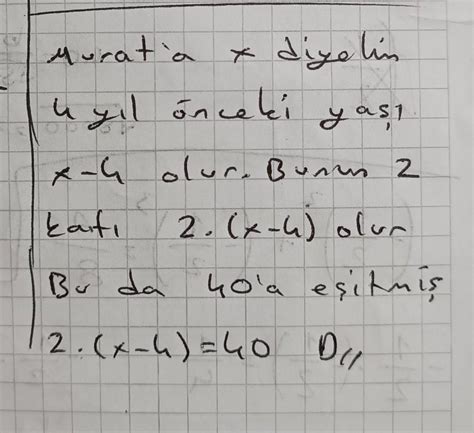 Murat'a x diyelim
4 yıl önceki yaşı
x-4 olur. Bunun 2
katı 2.(x-4) olur
Bu da 40'a eşitmiş
2.(x-4)=40 D//